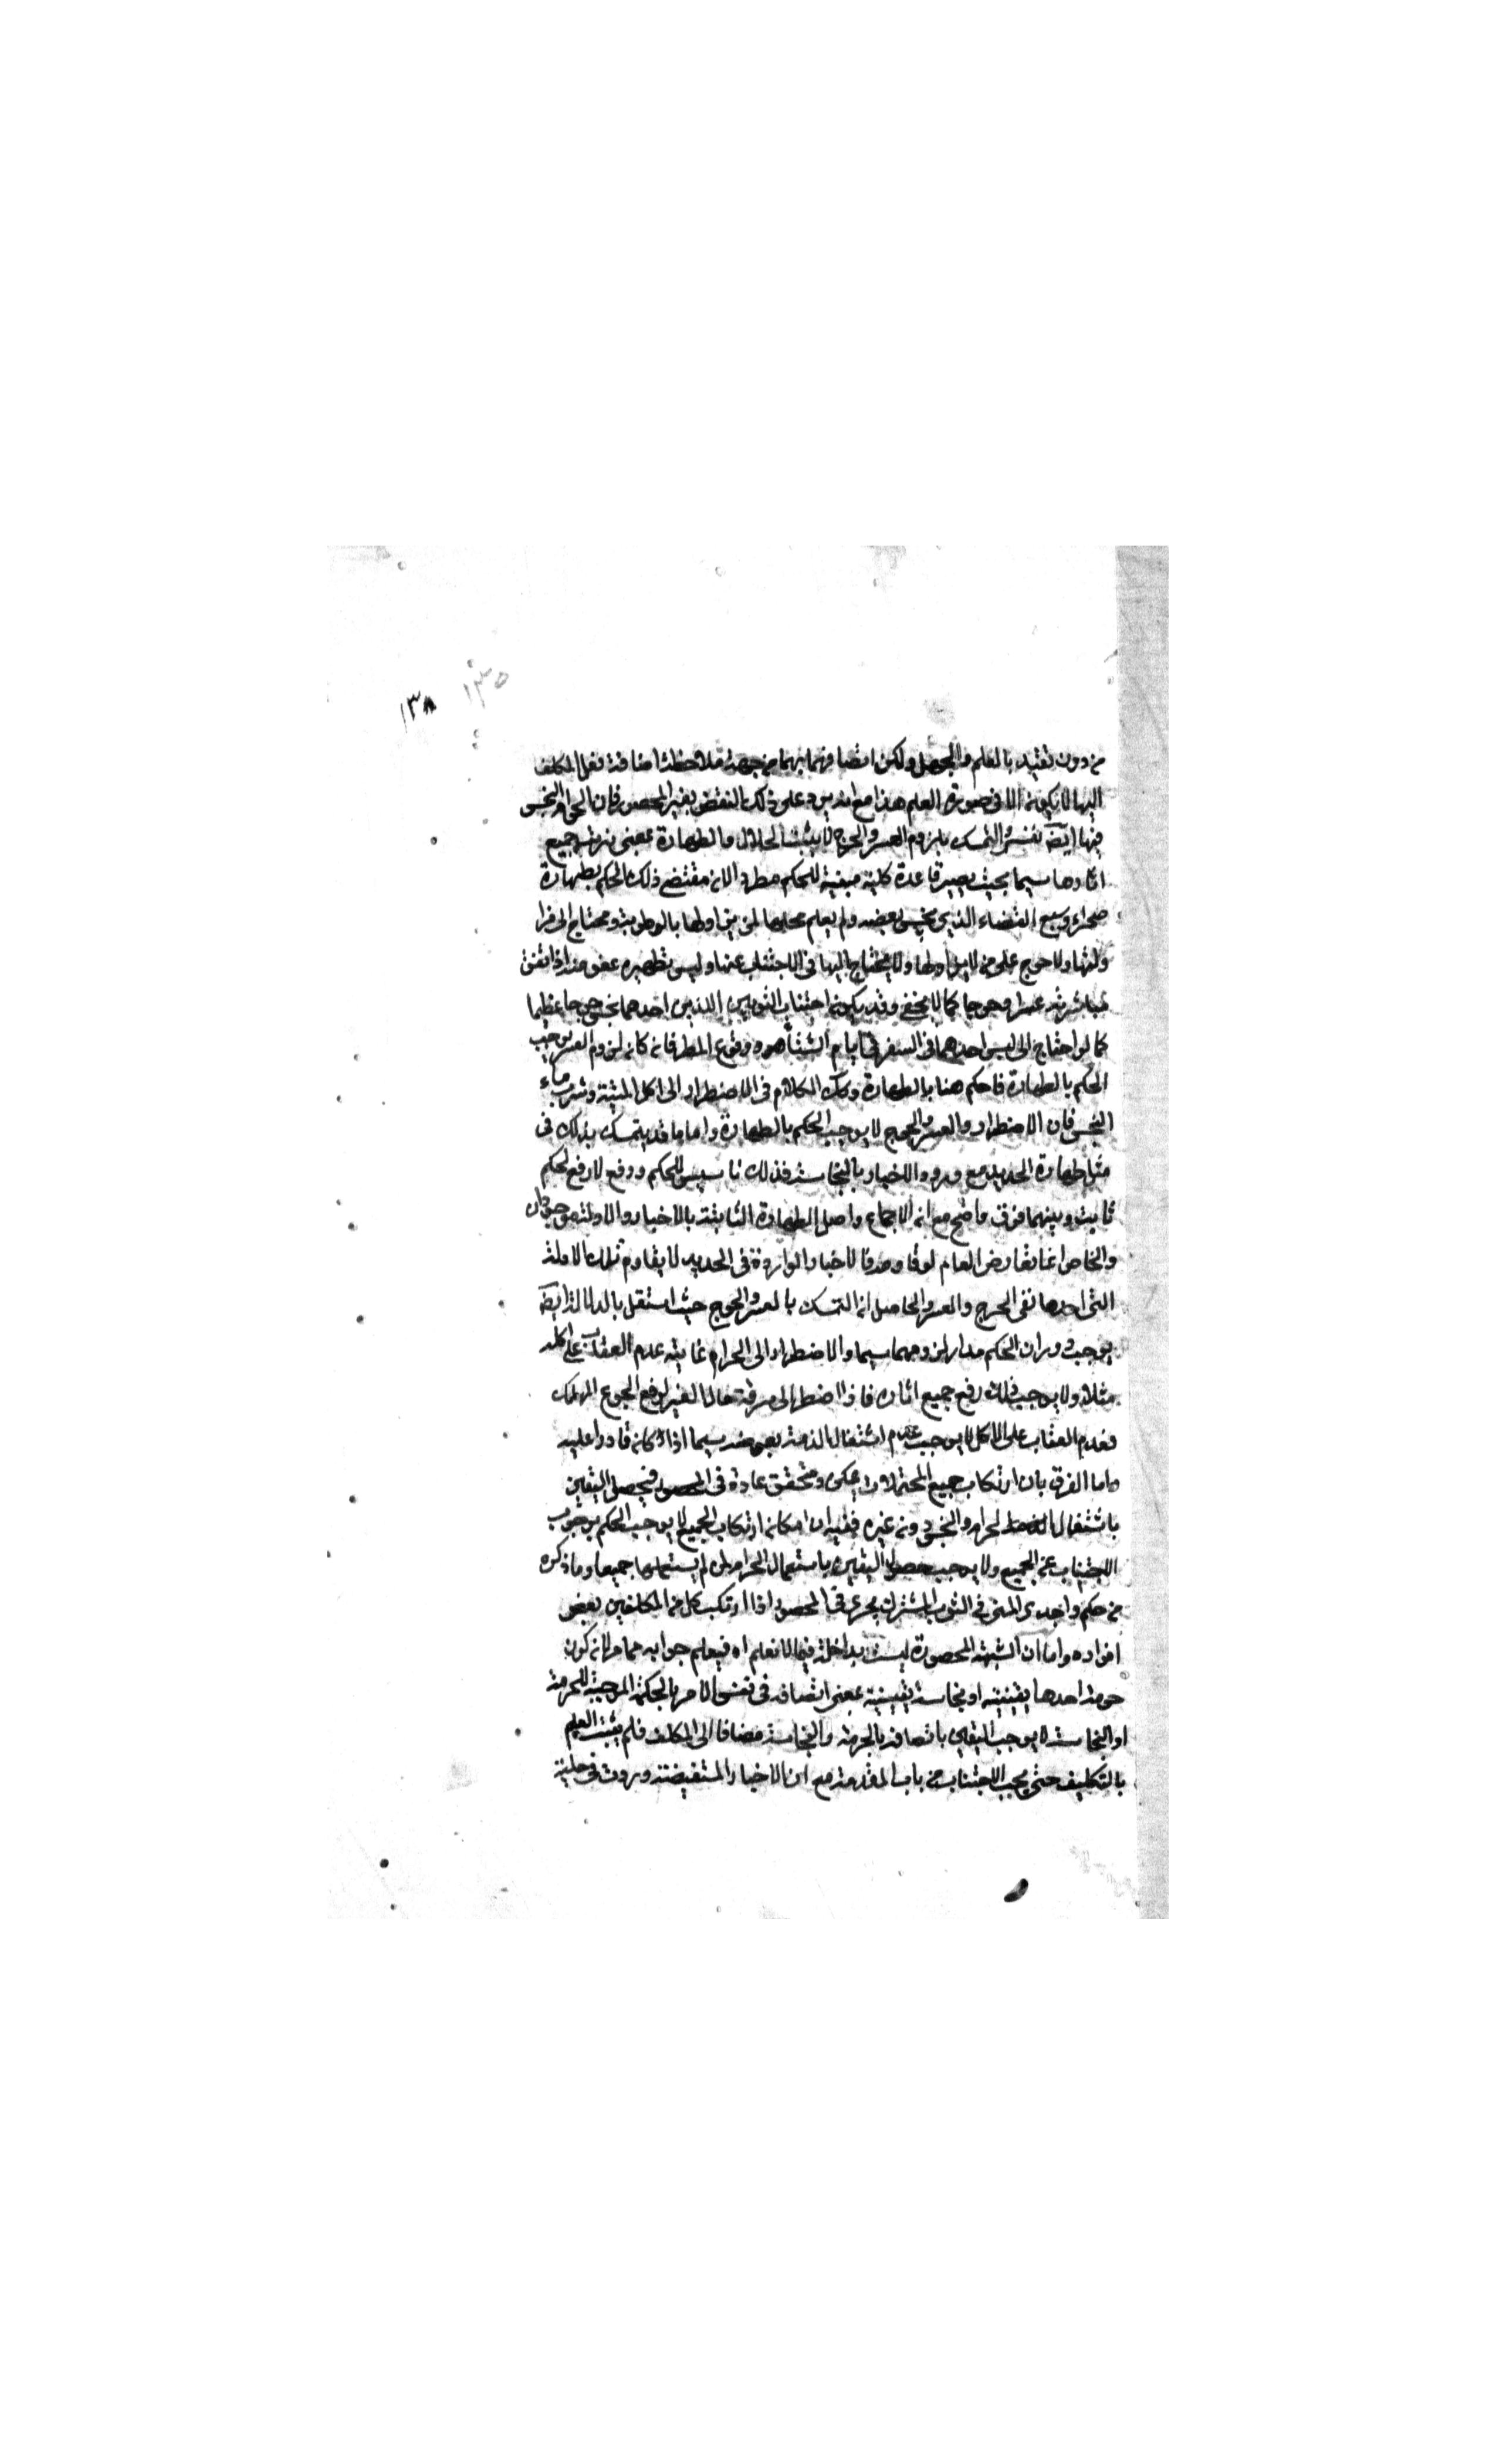 ١٣٥
١٣٨
من دون تقييد بالعلم والجهل ولكن اتصافهما بهما من جهة ملاحظة اضافة فعل المكلف
اليها لا يكون الا فى صورة العلم هذا مع انه يرد على ذلك النقض بغير المحصور فان الحرام والنجس
فيها ايضا نفس والتمسك بلزوم العسر والحرج لا يثبت الحلال والطهارة بمعنى ترتب جميع
اثارهما سيما بحيث يصير قاعدة كلية مبنية للحكم مطردا لان مقتضى ذلك الحكم بطهارة
صحراء وسيع الفضاء الذى نجس بعضه ولم يعلم محلها لمن يزاولها بالرطوبة ومحتاج الى مزا
ولتها ولا حرج على من لا يزاولها ولا يحتاج اليها فى الاجتناب عنها وليس تطهيره عضو منه اذا اتفق
مباشرته عسرا وحرجا كما لا يخفى وقد يكون اجتناب الثوبين اللذين احدهما نجس حرجا عظيما
كما لو احتاج الى لبس احدهما فى السفر فى ايام الشتاء ووقوع المطر فان كان لزوم العسر يوجب
الحكم بالطهارة فاحكم هنا بالطهارة وكذا الكلام فى الاضطرار الى اكل الميتة وشرب ماء
النجس فان الاضطرار والعسر والحرج لا يوجب الحكم بالطهارة واما ما قد يتمسك بذلك فى
مثل طهارة الحديد مع ورود الاخبار بالنجاسة فذلك تاسيس للحكم ودفع لا رفع لحكم
ثابت وبينهما فرق واضح مع ان الاجماع واصل الطهارة الثابتة بالاخبار والادلة موجودان
والخاص انما يعارض العام لو قاومه والاخبار الواردة فى الحديد لا يقاوم تلك الادلة
التى احدها نفى الحرج والعسر والحاصل ان التمسك بالعسر والحرج حيث استقل بالدلالة ايضا
يوجب دوران الحكم مدار لزومهما سيما والاضطرار الى الحرام غايته عدم العقاب على اكله
مثلا ولا يوجب ذلك رفع جميع اثاره فاذا اضطر الى سرقة مال الغير لرفع الجوع المهلك
فعدم العقاب على الاكل لا يوجب عدم اشتغال الذمة بعوضه سيما اذا كان قادرا عليه
واما الفرق بان ارتكاب جميع المحتملات يمكن ومتحقق عادة فى المحصور فيحصل اليقين
باشتغال الحرام والنجس دون غيره ففيه ان امكان ارتكاب الجميع لا يوجب الحكم بوجوب
الاجتناب عن الجميع ولا يوجب حصول اليقين باستعمال الحرام لمن لم يستعملها جميعا وما ذكره
من حكم واجدى المنى فى الثوب المشترك يجرى فى المحصور اذا ارتكب كل من المكلفين بعض
افراده واما ان الشبهة المحصورة ليست بداخلة فيما لا نعلم اه فيعلم جوابه مما مر لان كون
حرمة احدها يقينية او نجاسة يقينية بمعنى اتصافه فى نفس الامر بالحكمة الموجبة للحرمة
او النجاسة لا يوجب اليقين باتصافه بالحرمة والنجاسة مضافا الى المكلف فلم يثبت العلم
بالتكليف حتى يجب الاجتناب من باب المقدمة مع ان الاخبار المستفيضة وردت فى حلية